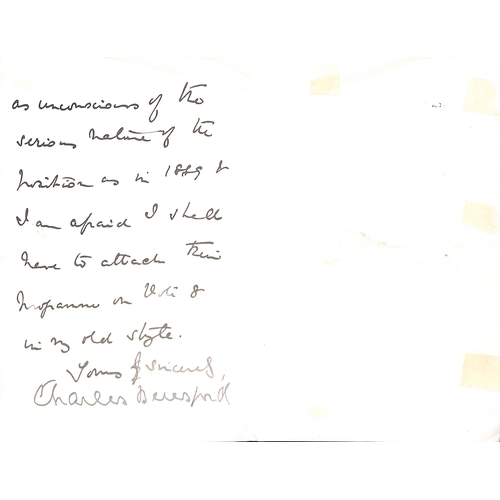 as unconscious of the
serious nature of the
position as in 1889 &
I am afraid I shall
have to attack their
Programme on &
in my old style.
Yours sincerely,
Charles Beresford